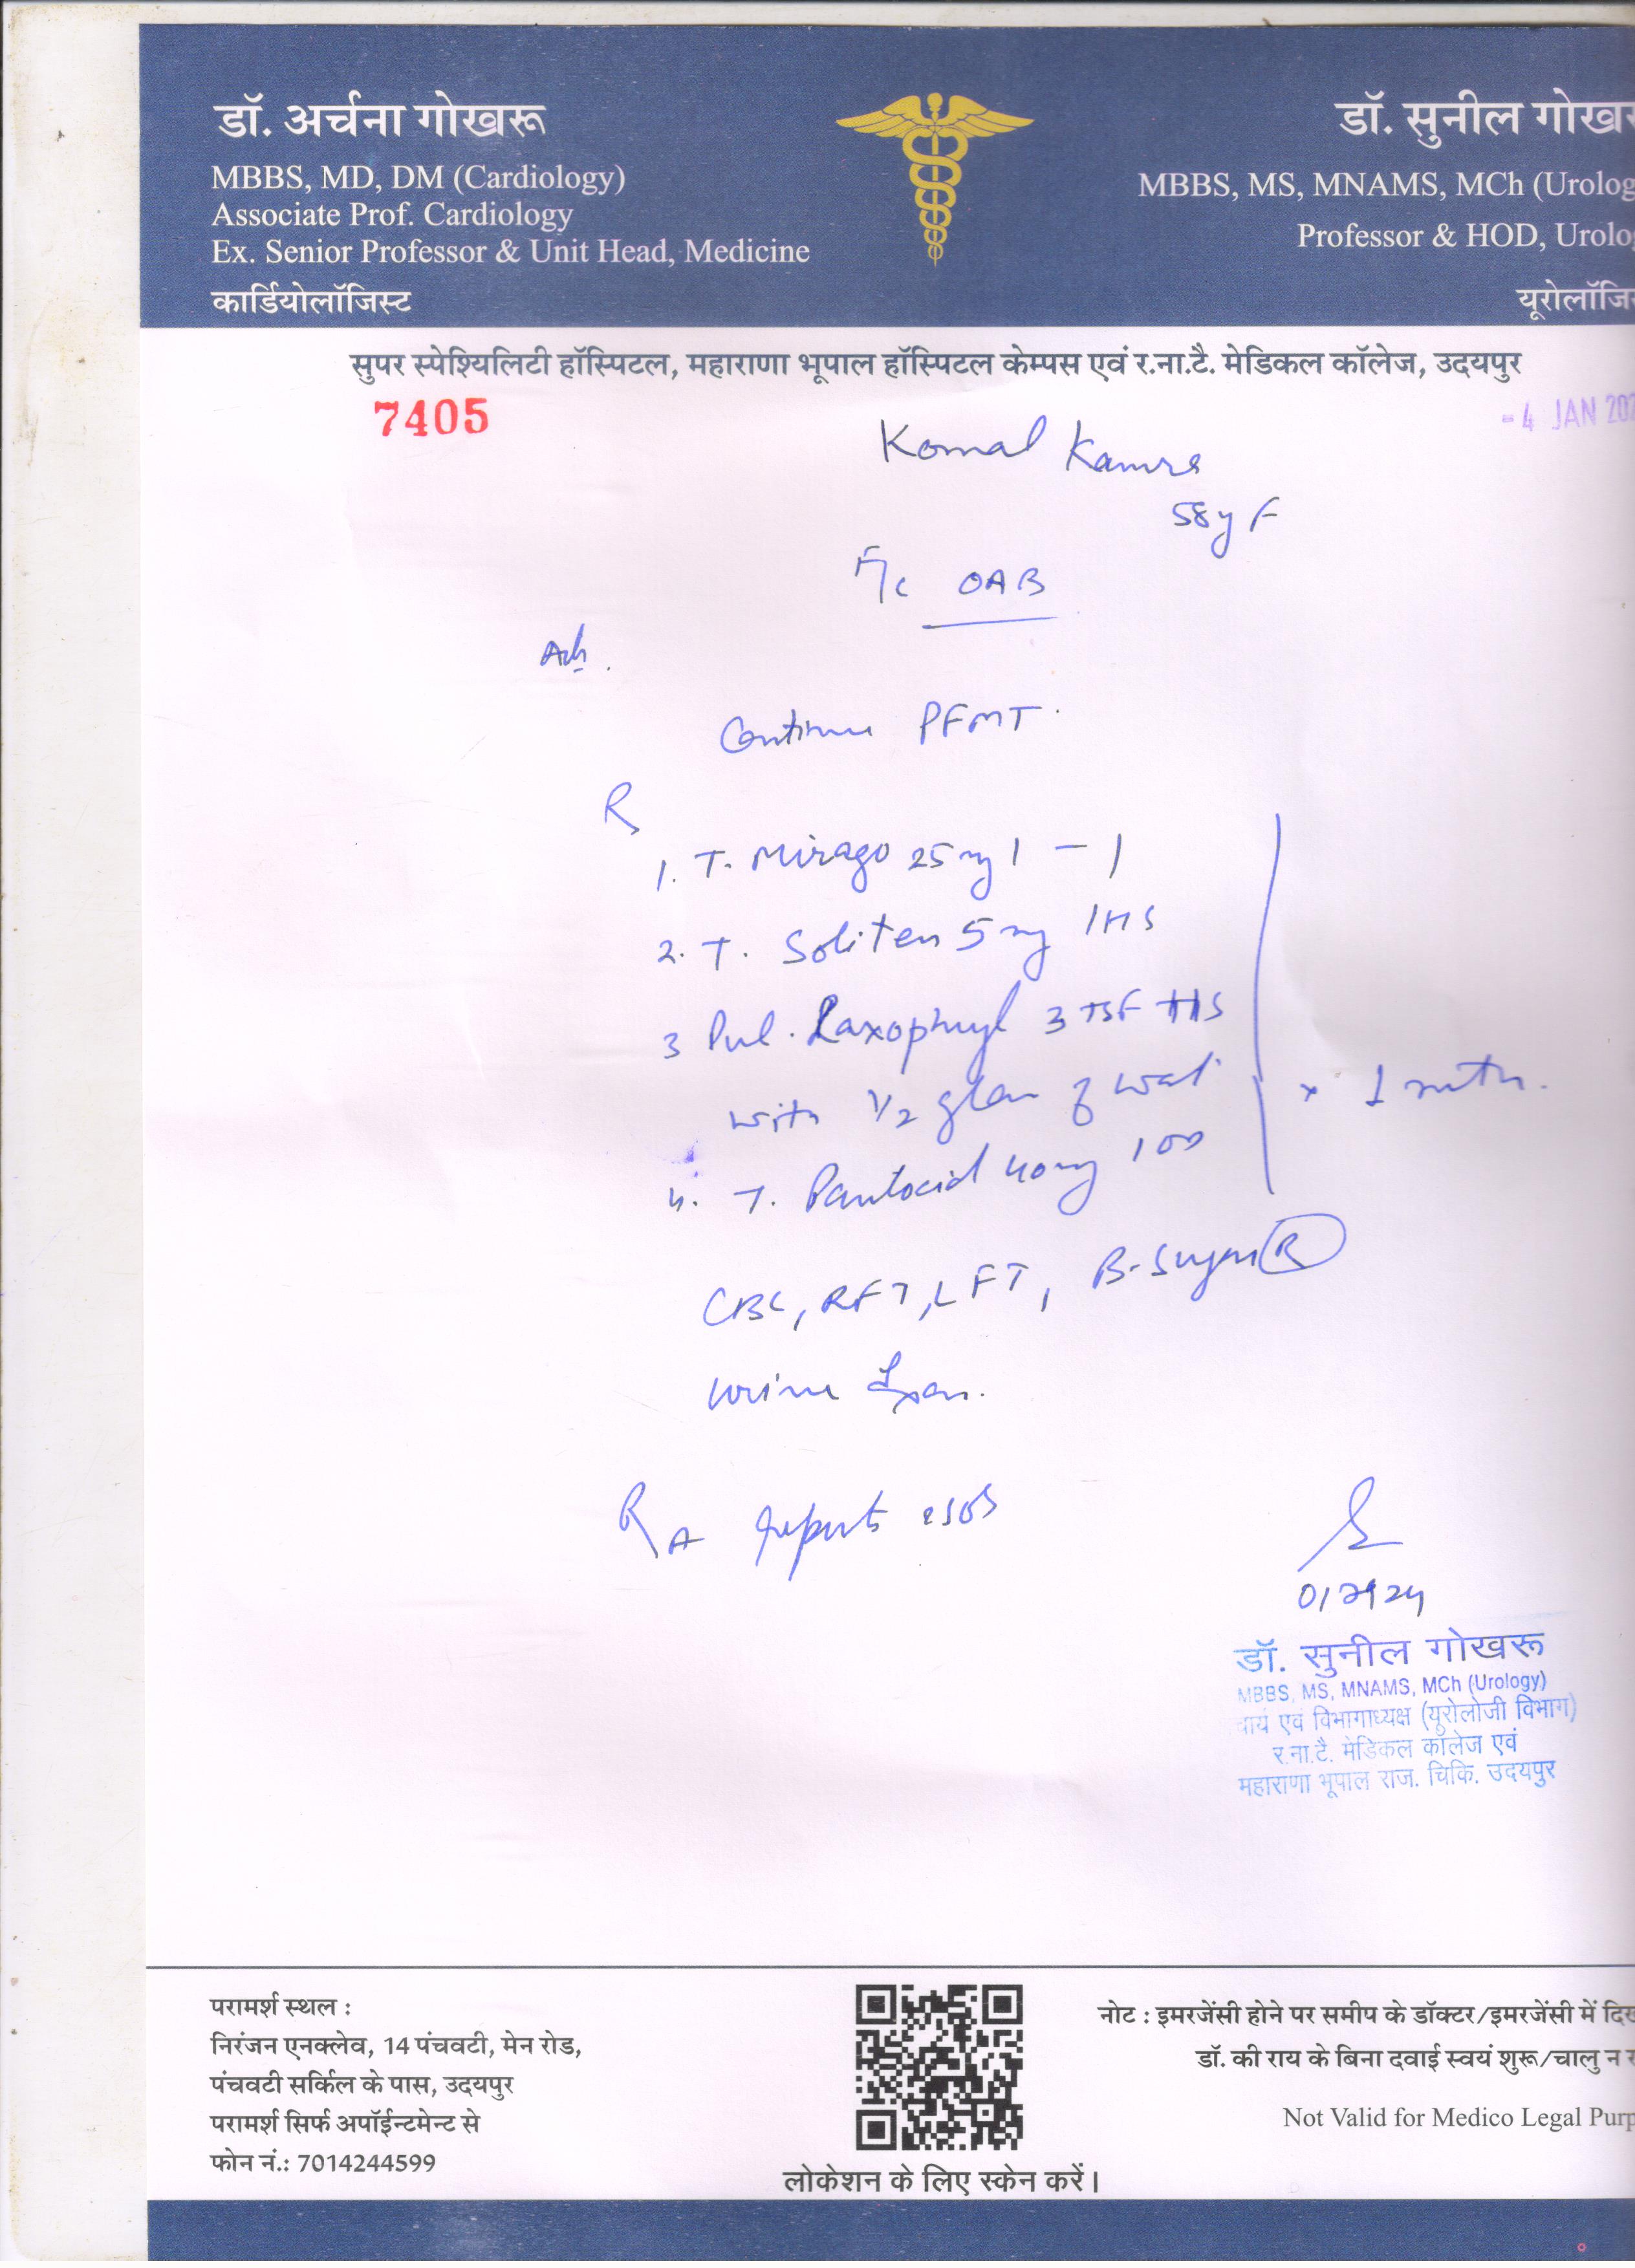 डॉ. अर्चना गोखरू
MBBS, MD, DM (Cardiology)
Associate Prof. Cardiology
Ex. Senior Professor & Unit Head, Medicine
कार्डियोलॉजिस्ट
डॉ. सुनील गोखर
MBBS, MS, MNAMS, MCh (Urolog
Professor & HOD, Urolog
यूरोलॉजि
सुपर स्पेश्यिलिटी हॉस्पिटल, महाराणा भूपाल हॉस्पिटल केम्पस एवं र.ना.टै. मेडिकल कॉलेज, उदयपुर
7405
- 4 JAN 202
Komal Kamra
58y F
F/c OAB
Adv.
Continue PFMT.
R
1. T. Mirago 25 mg 1 - 1
2. T. Soliten 5 mg 1 HS
3 Pul. Laxophyl 3 TSF HS
with 1/2 glass of wat
x 1 mth.
4. T. Pantocid 40mg 1 OD
CBC, RFT, LFT, B-Sugar (R)
urine Exam.
R A reports
डॉ. सुनील गोखरू
MBBS, MS, MNAMS, MCh (Urology)
चार्य एवं विभागाध्यक्ष (यूरोलोजी विभाग)
र.ना.टै. मेडिकल कॉलेज एवं
महाराणा भूपाल राज. चिकि. उदयपुर
परामर्श स्थल :
निरंजन एनक्लेव, 14 पंचवटी, मेन रोड,
पंचवटी सर्किल के पास, उदयपुर
परामर्श सिर्फ अपॉईन्टमेन्ट से
फोन नं.: 7014244599
लोकेशन के लिए स्केन करें।
नोट : इमरजेंसी होने पर समीप के डॉक्टर/इमरजेंसी में दिख
डॉ. की राय के बिना दवाई स्वयं शुरू/चालु न
Not Valid for Medico Legal Purp